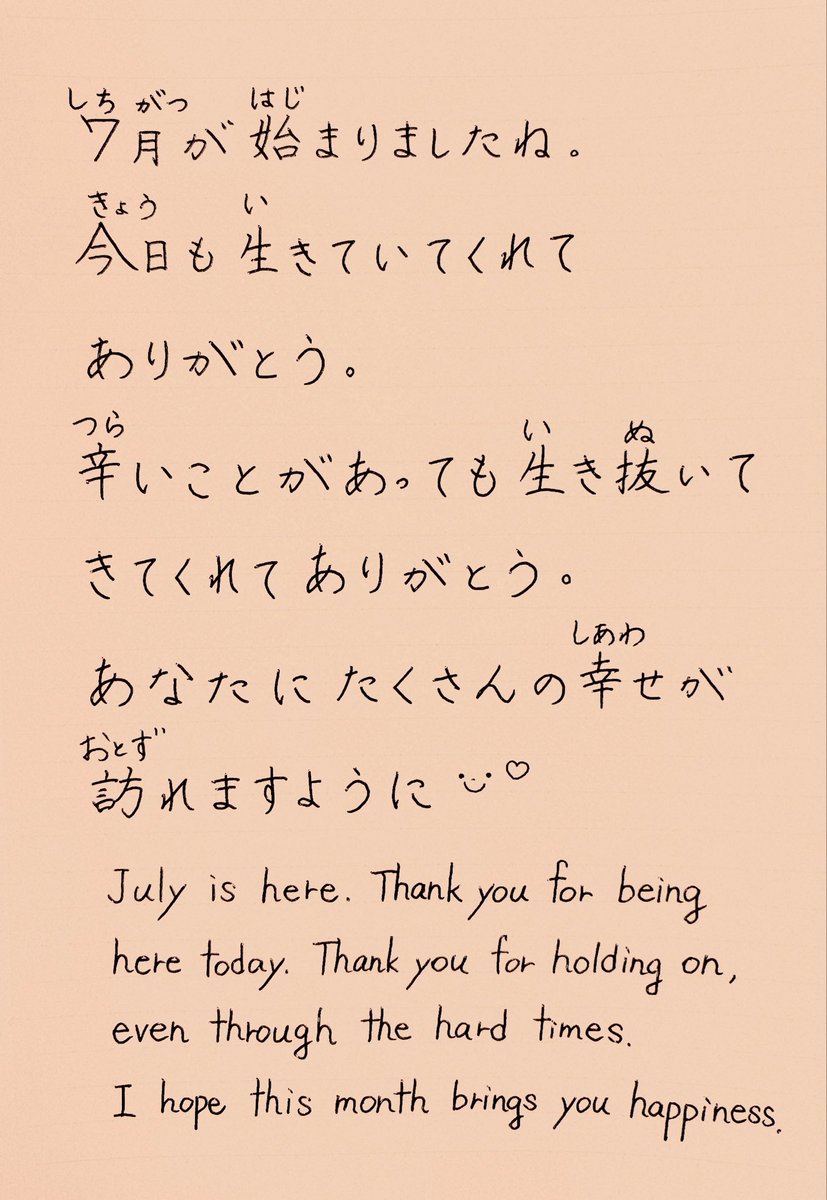 しちがつ はじ
7月が始まりましたね。
きょう い
今日も生きていてくれて
ありがとう。
つら い ぬ
辛いことがあっても生き抜いて
きてくれてありがとう。
しあわ
あなたにたくさんの幸せが
おとず
訪れますように
July is here. Thank you for being
here today. Thank you for holding on,
even through the hard times.
I hope this month brings you happiness.